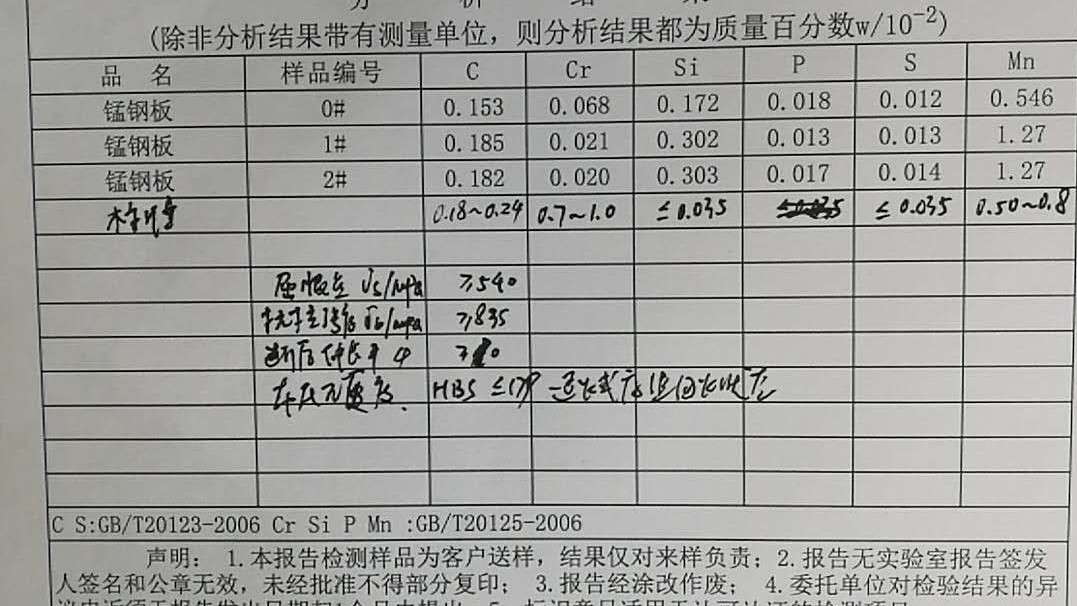 分 析 结 果
(除非分析结果带有测量单位，则分析结果都为质量百分数w/10⁻²)
品 名 样品编号 C Cr Si P S Mn
锰钢板 0# 0.153 0.068 0.172 0.018 0.012 0.546
锰钢板 1# 0.185 0.021 0.302 0.013 0.013 1.27
锰钢板 2# 0.182 0.020 0.303 0.017 0.014 1.27
0.18~0.24 0.7~1.0 ≤0.035 ≤0.035 ≤0.035 0.50~0.8
屈服点 σs/mpa ≥540
抗拉强度 σb/mpa ≥835
断后伸长率 ≥10
HBS ≤179 退火或高温回火状态
C S:GB/T20123-2006 Cr Si P Mn :GB/T20125-2006
声明: 1.本报告检测样品为客户送样，结果仅对来样负责；2.报告无实验室报告签发
人签名和公章无效，未经批准不得部分复印； 3.报告经涂改作废； 4.委托单位对检验结果的异